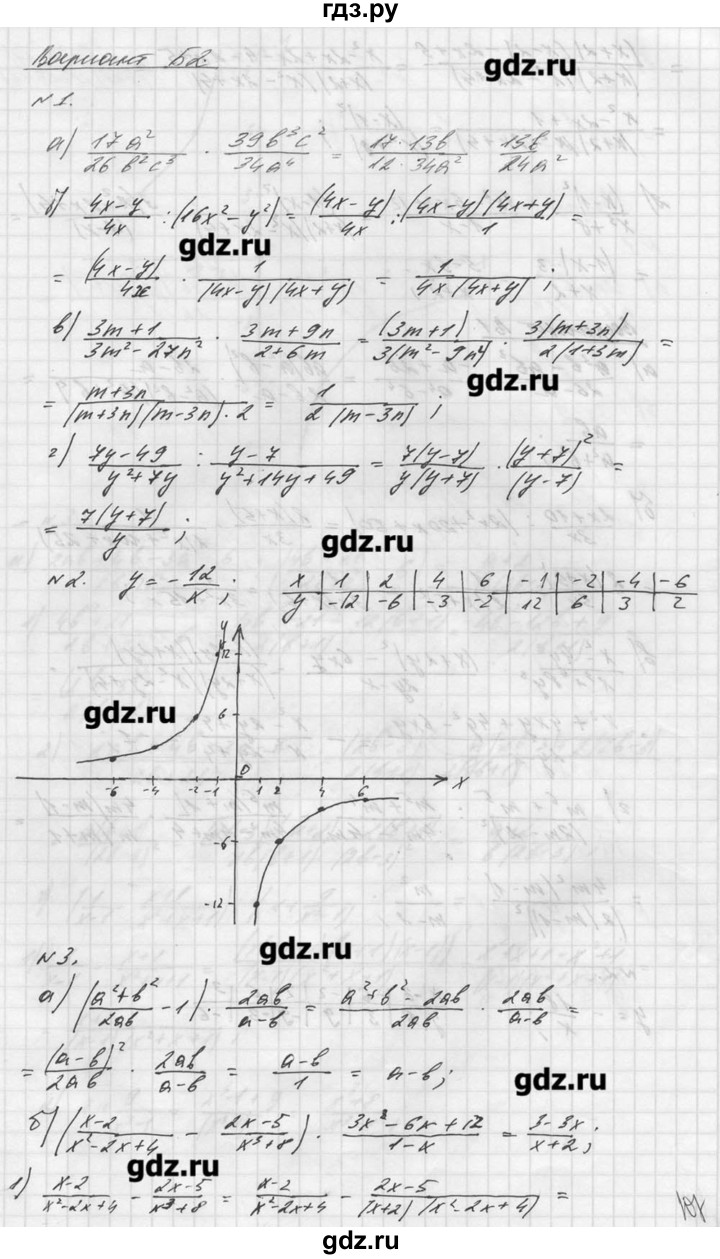 гдз.ру
Вариант Б2.
gdz.ru
№1.
а) 17a²/26b²c³ · 39b³c²/34a⁴ = 17·13b/12·34a² 13b/24a²
б) 4x-y/4x : (16x²-y²) = (4x-y)/4x : (4x-y)(4x+y)/1 =
gdz.ru
= (4x-y)/4x · 1/(4x-y)(4x+y) = 1/4x(4x+y);
в) 3m+1/3m²-27n² · 3m+9n/2+6m = (3m+1)/3(m²-9n²) · 3(m+3n)/2(1+3m) =
gdz.ru
= m+3n/(m+3n)(m-3n)·2 = 1/2(m-3n);
г) 7y-49/y²+7y : y-7/y²+14y+49 = 7(y-7)/y(y+7) · (y+7)²/(y-7) =
= 7(y+7)/y;
gdz.ru
№2. y = -12/x;
x | 1 | 2 | 4 | 6 | -1 | -2 | -4 | -6
y | -12 | -6 | -3 | -2 | 12 | 6 | 3 | 2
y
12
gdz.ru
6
0
-6 -4 -2 -1 1 2 4 6 x
-6
-12
gdz.ru
№3.
а) (a²+b²/2ab - 1) · 2ab/a-b = a²+b²-2ab/2ab · 2ab/a-b =
= (a-b)²/2ab · 2ab/a-b = a-b/1 = a-b;
gdz.ru
б) (x-2/x²-2x+4 - 2x-5/x³+8) · 3x²-6x+12/1-x = 3-3x/x+2;
gdz.ru
1) x-2/x²-2x+4 - 2x-5/x³+8 = x-2/x²-2x+4 - 2x-5/(x+2)(x²-2x+4) =
gdz.ru